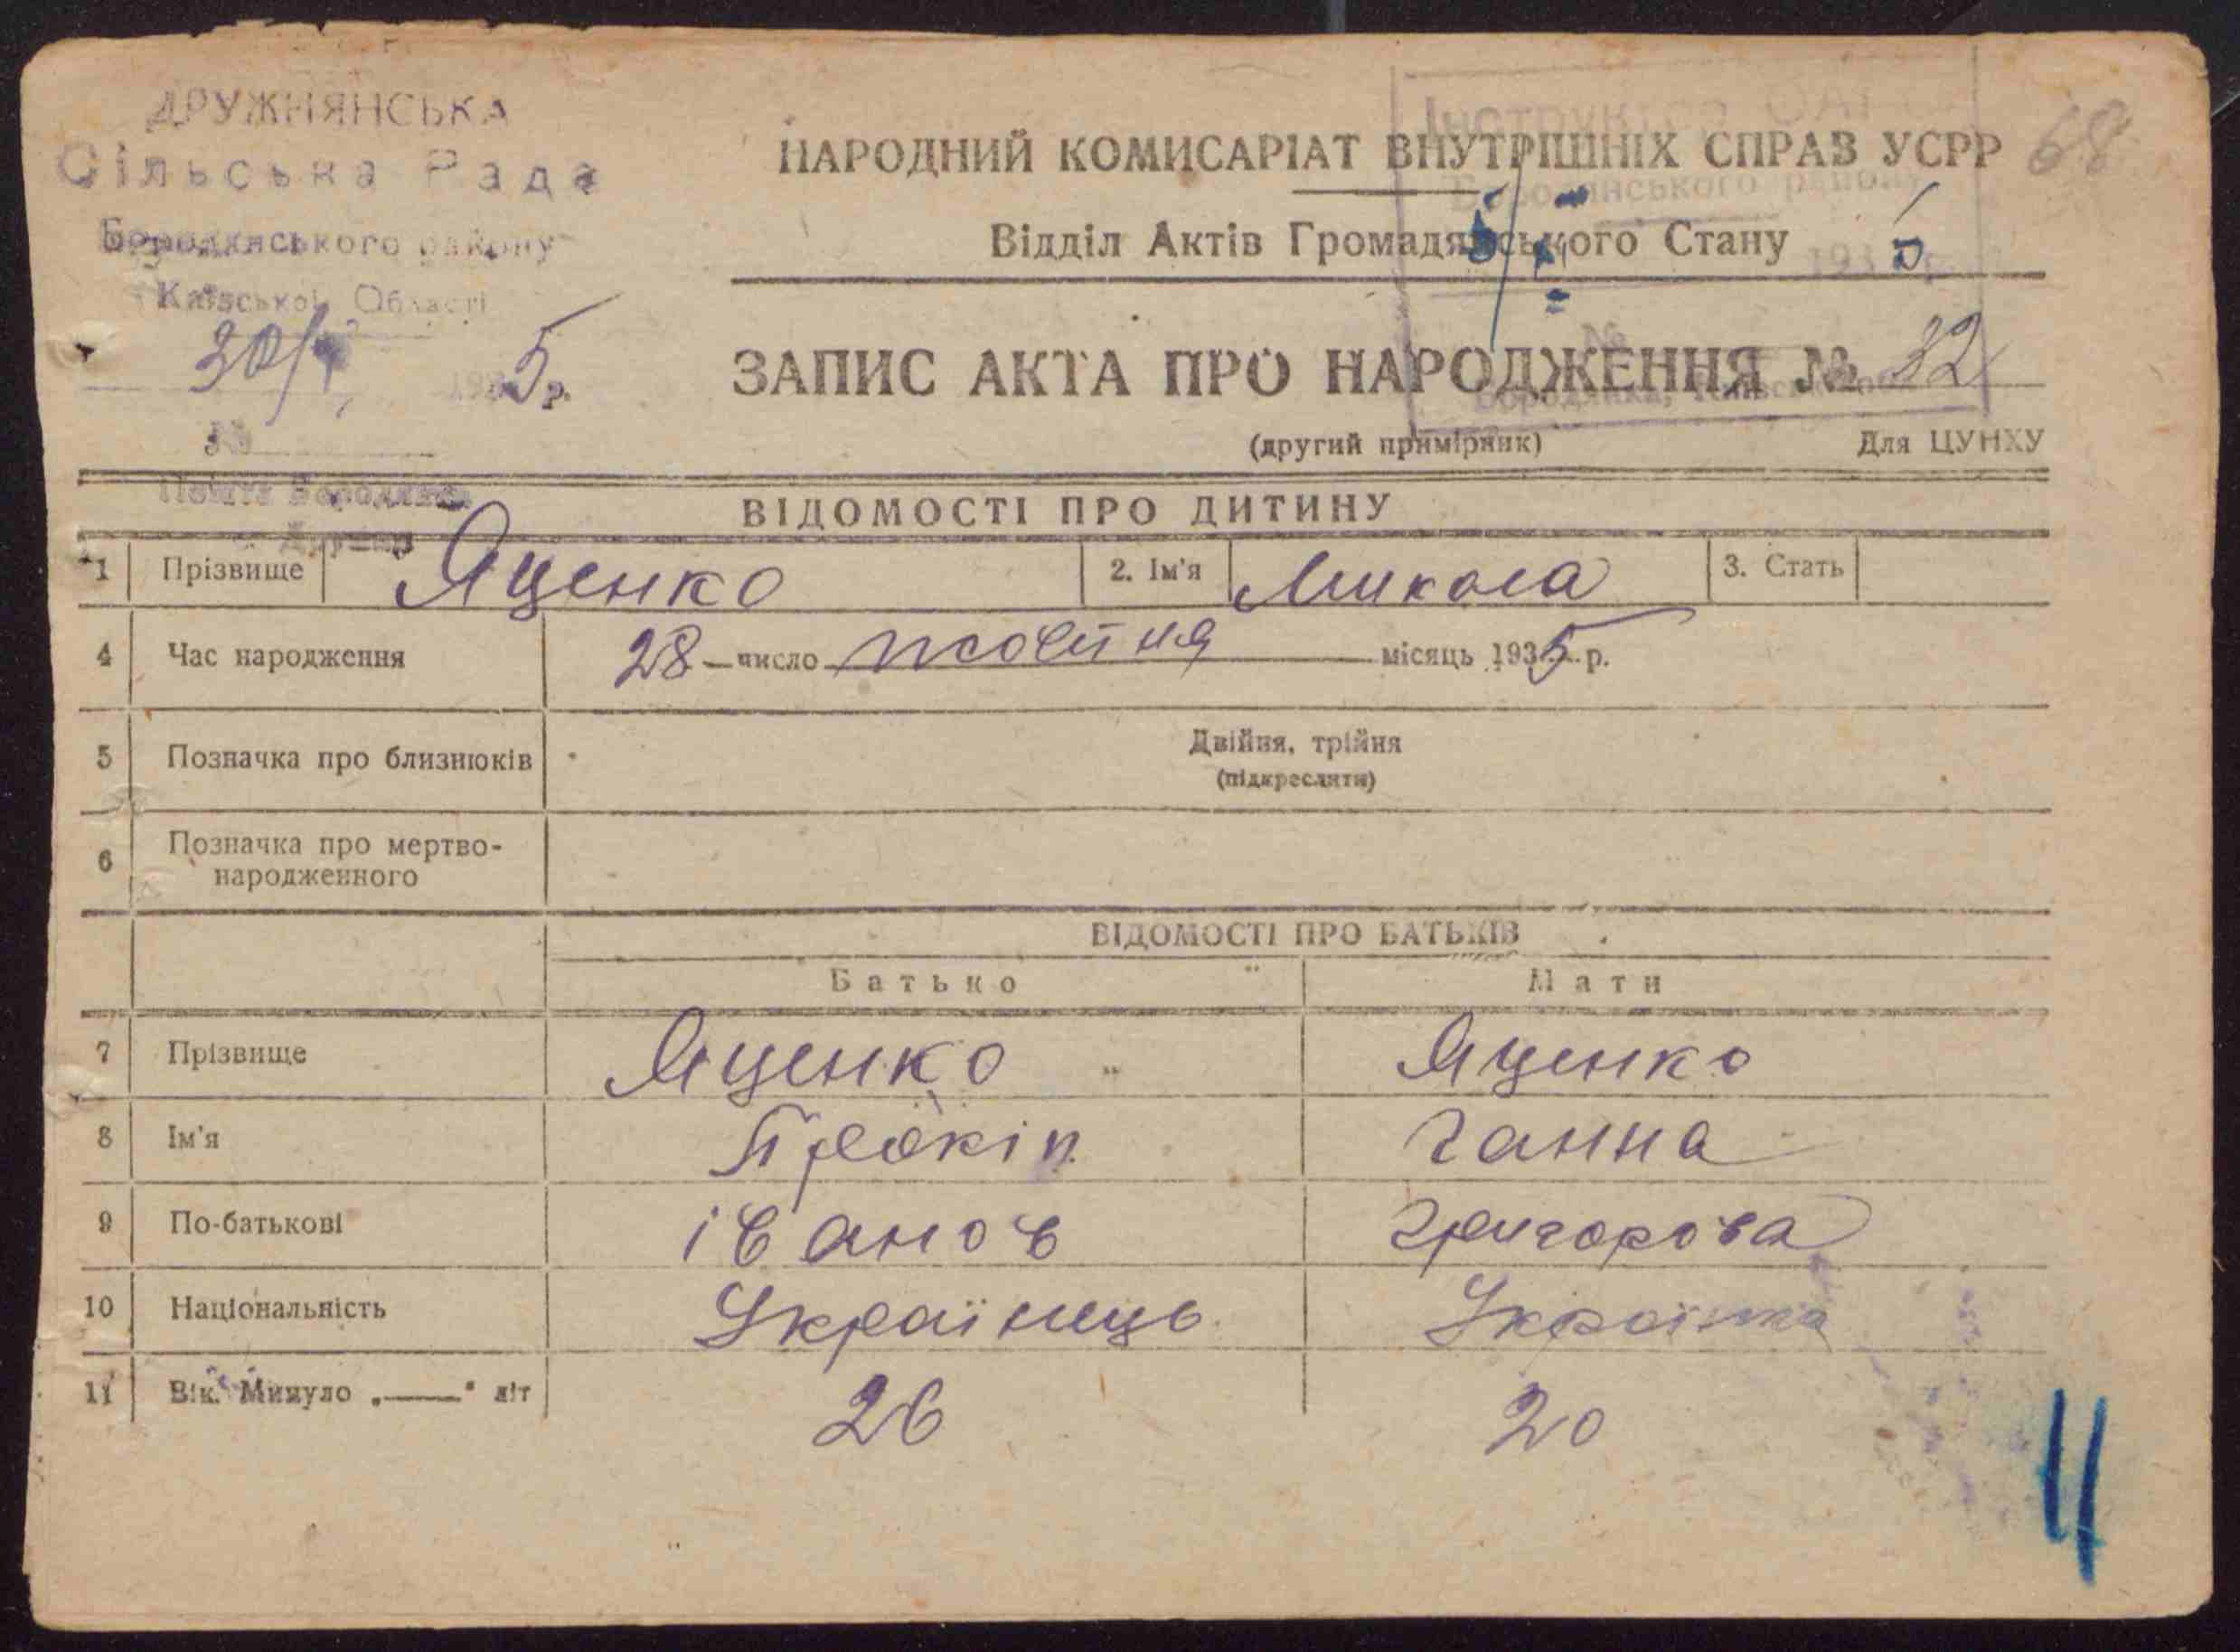 ДРУЖНЯНСЬКА
Сільська Рада
Бородянського району
Київської Області
30/X 1935 р.
№
Пошта Бородянка
68
Інструктор ЗАГС
Бородянського району
НАРОДНИЙ КОМИСАРІАТ ВНУТРІШНІХ СПРАВ УСРР
Відділ Актів Громадянського Стану
ЗАПИС АКТА ПРО НАРОДЖЕННЯ № 32
(другий примірник)
Для ЦУНХУ
ВІДОМОСТІ ПРО ДИТИНУ
1 Прізвище Яценко 2. Ім'я Микола 3. Стать
4 Час народження 28 число жовтня місяць 1935 р.
5 Позначка про близнюків Двійня, трійня
(підкреслити)
6 Позначка про мертво-
народженного
ВІДОМОСТІ ПРО БАТЬКІВ
Батько Мати
7 Прізвище Яценко Яценко
8 Ім'я Прокіп Ганна
9 По-батькові іванов Григорова
10 Національність Українець Українка
11 Вік. Минуло „ “ літ 26 20